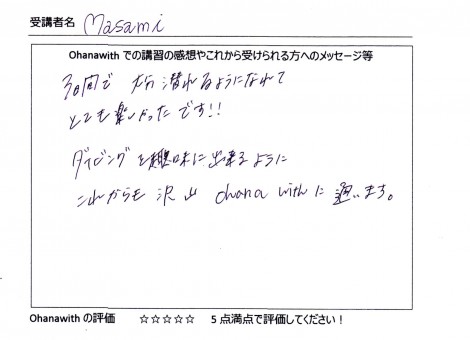 受講者名 Masami
Ohanawith での講習の感想やこれから受けられる方へのメッセージ等
3日間で 大分 潜れるようになれて
とても楽しかったです!!
ダイビングを趣味に出来るように
これからも 沢山 ohana with に 通います。
Ohanawith の評価 ☆☆☆☆☆ 5 点満点で評価してください!